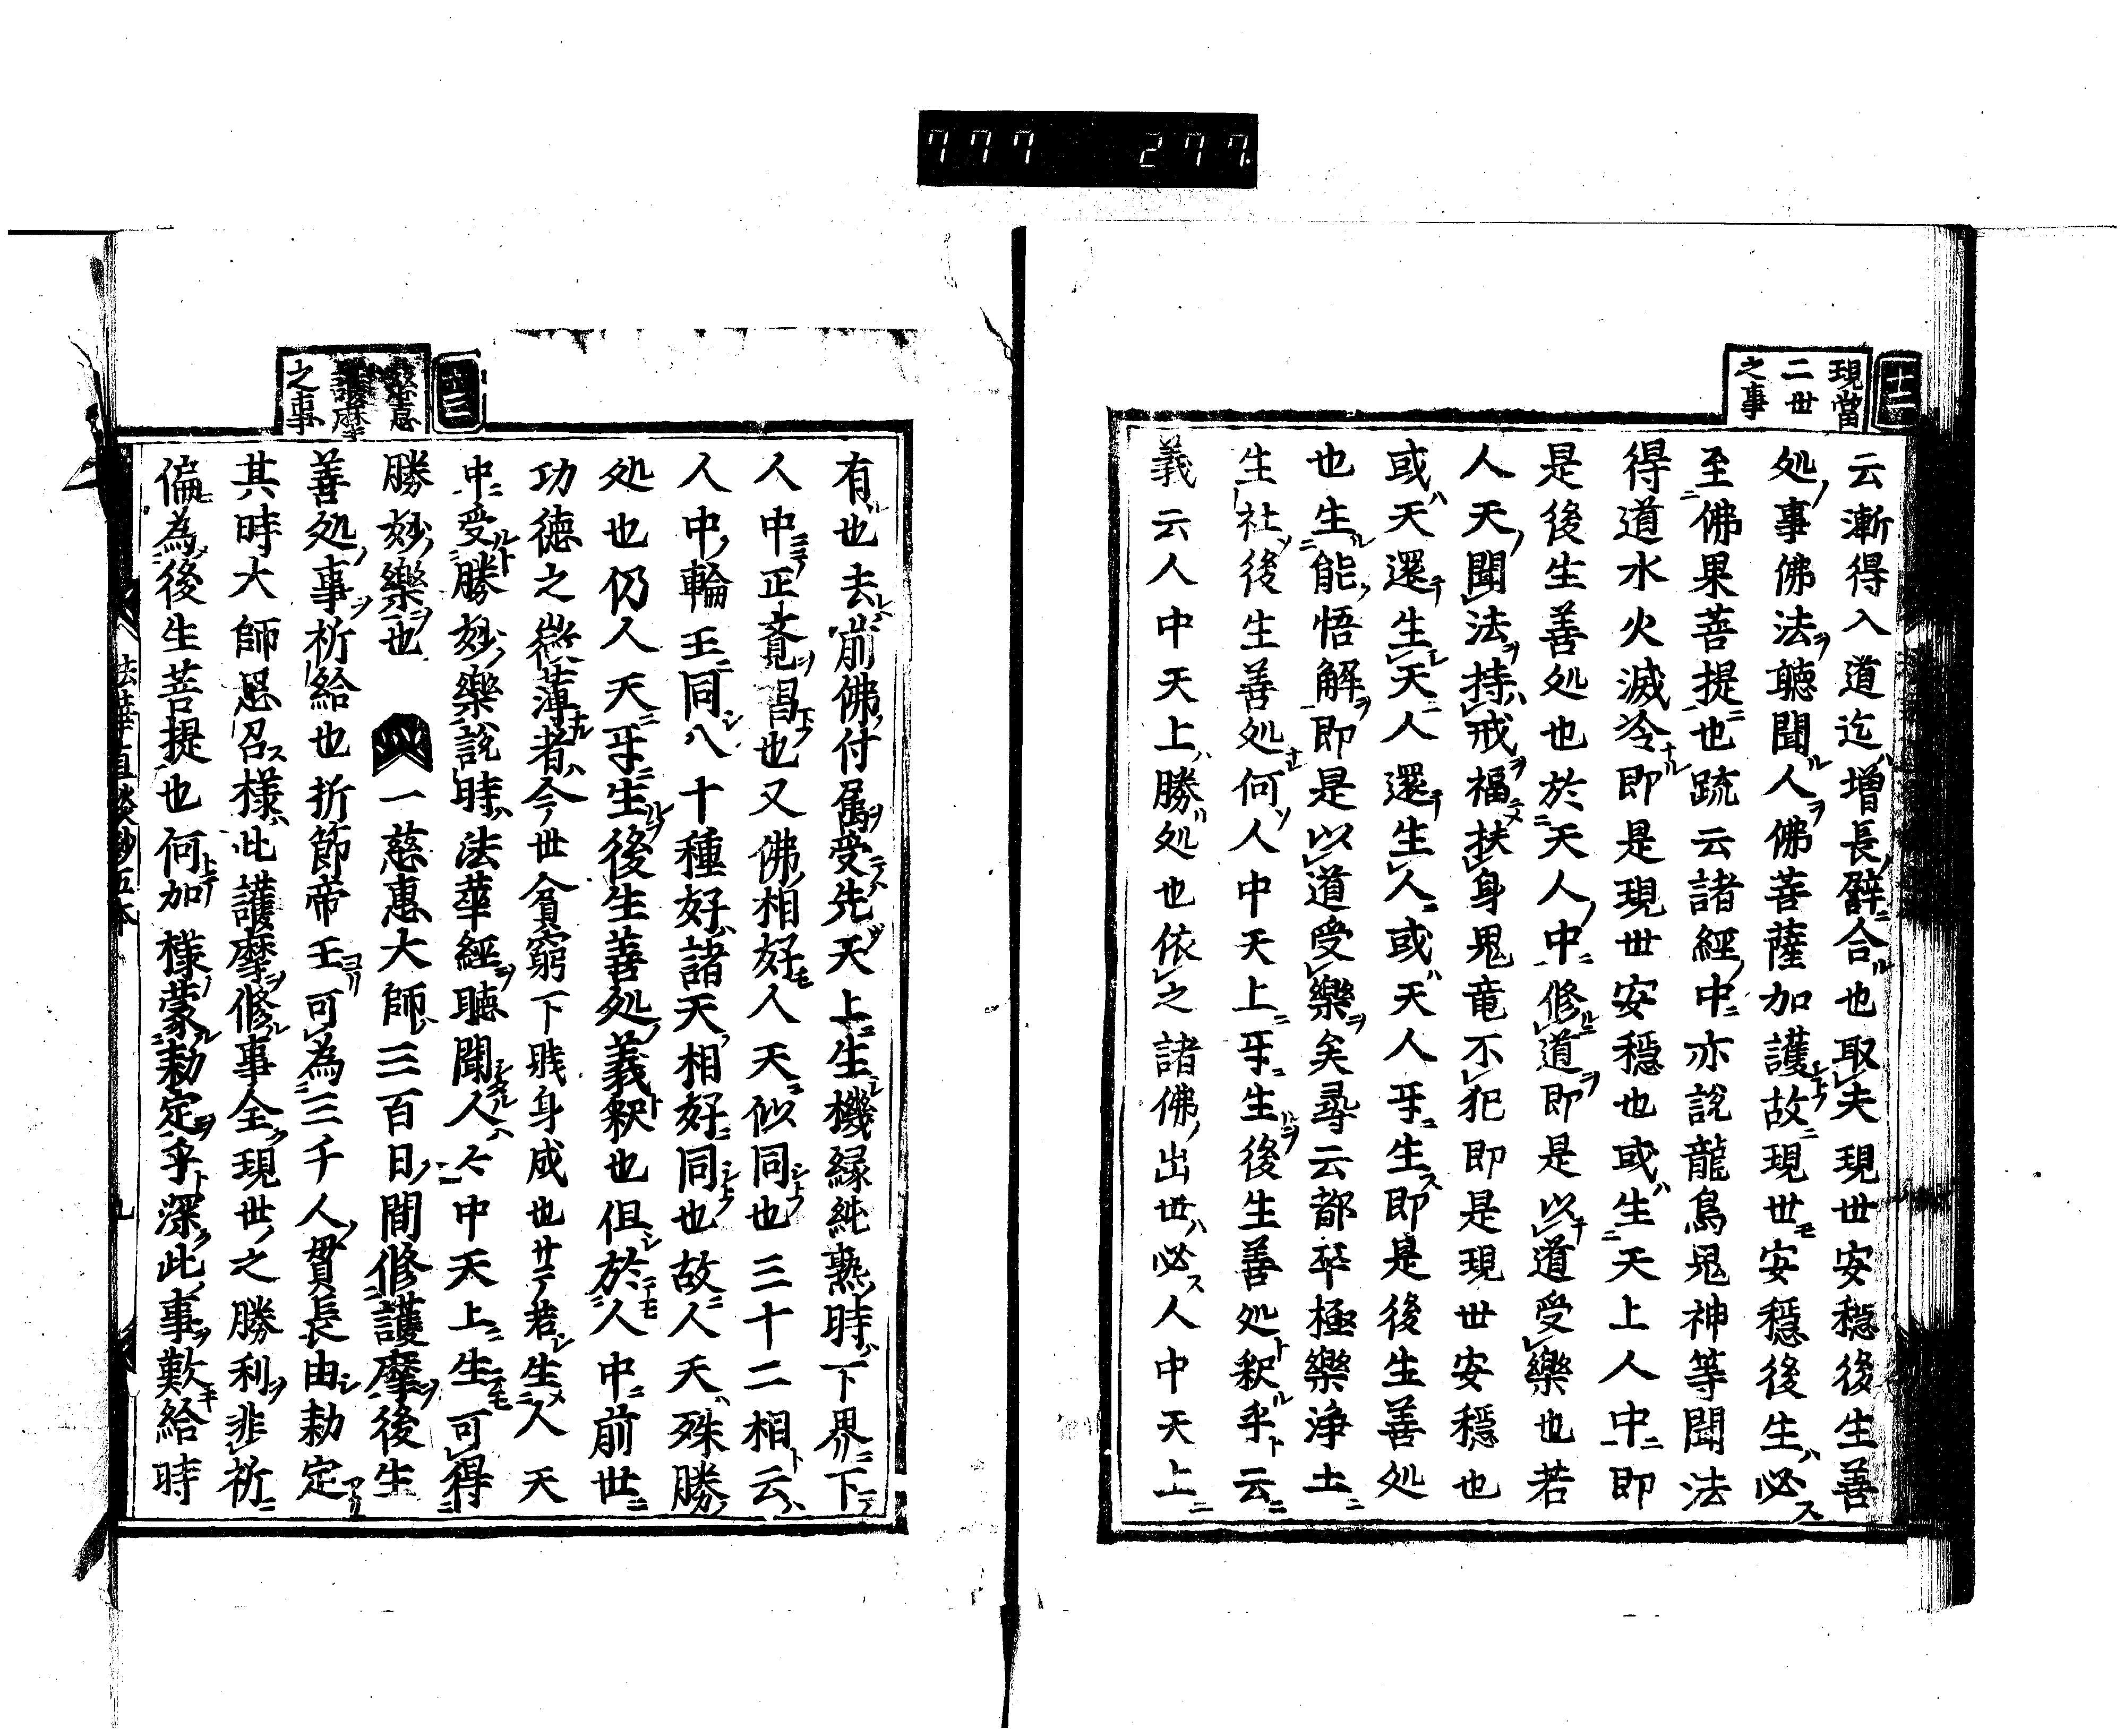 777 277.
十二
現當
二世
之事
云漸得入道迄増長辟合也取夫現世安穏後生善
処事佛法聴聞人佛菩薩加護故現世安穏後生必
至佛果菩提也䟽云諸經中亦説龍鳥鬼神等聞法
得道水火滅冷即是現世安穏也或生天上人中即
是後生善処也於天人中修道即是以道受樂也若
人天聞法持戒福扶身鬼竜不犯即是現世安穏也
或天還生天人還生人或天人互生即是後生善処
也生能悟解即是以道受樂矣尋云都卒極樂浄土
生社後生善処何人中天上互生後生善処釈乎云
義云人中天上勝処也依之諸佛出世必人中天上
有也去前佛付属受先天上生機縁純熟時下界下
人中正覚唱也又佛相好人天似同也三十二相云
人中輪王同八十種好諸天相好同也故人天殊勝
処也仍人天互生後生善処義釈也但於人中前世
功德之微薄者今世貧窮下賎身成也廿丁若生人天
中受勝妙樂説時法華經聴聞人人中天上生可得
勝妙樂也 一慈惠大師三百日間修護摩後生
善処事祈給也折節帝王可為三千人貫長由勅定
其時大師思召様此護摩修事全現世之勝利非祈
偏為後生菩提也何加様蒙勅定乎深此事歎給時
十三
慈惠
護摩
之事
法華直談鈔五本
九